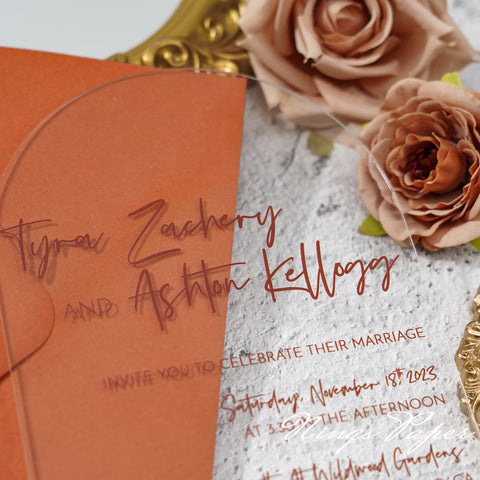 Tyra Zachery
AND Ashton Kellogg
INVITE YOU TO CELEBRATE THEIR MARRIAGE
Saturday, November 18th 2023
AT 3:3 THE AFTERNOON
Nings Paper
At Wildwood Gardens